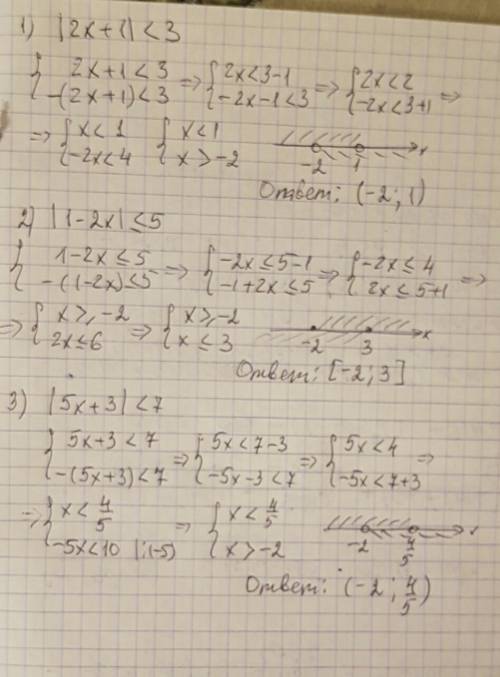 1) |2x+1|<3
{ 2x+1<3 -(2x+1)<3 => { 2x<3-1 -2x-1<3 => { 2x<2 -2x<3+1 =>
=> { x<1 -2x<4 { x<1 x>-2 -2 1 x
Ответ: (-2; 1)
2) |1-2x|≤5
{ 1-2x≤5 -(1-2x)≤5 => { -2x≤5-1 -1+2x≤5 => { -2x≤4 2x≤5+1 =>
=> { x≥-2 2x≤6 => { x≥-2 x≤3 -2 3 x
Ответ: [-2; 3]
3) |5x+3|<7
{ 5x+3<7 -(5x+3)<7 => { 5x<7-3 -5x-3<7 => { 5x<4 -5x<7+3 =>
=> { x<4/5 -5x<10 |:(-5) => { x<4/5 x>-2 -2 4/5 x
Ответ: (-2; 4/5)